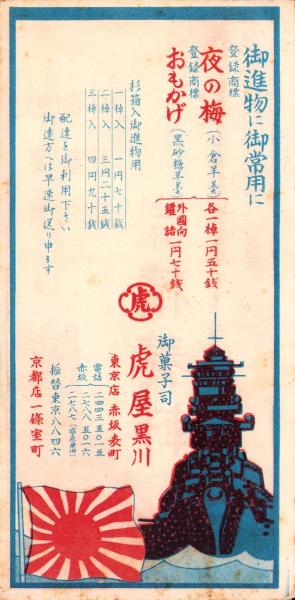 御進物に御常用に
登録商標
夜の梅(小倉羊羹)各一棹一円五十銭
登録商標
おもかげ(黒砂糖羊羹)外國向鑵詰一円七十銭
杉箱入御進物用
一棹入 一円七十銭
二棹入 三円二十五銭
三棹入 四円九十銭
配達を御利用下さい
御遠方へは早速御送り申ます
虎
御菓子司
虎屋黒川
東京店 赤坂表町
電話
赤坂
二四四三・五〇一五
二七八八・五〇一六
二七八七
振替東京八八四六
京都店 一條室町